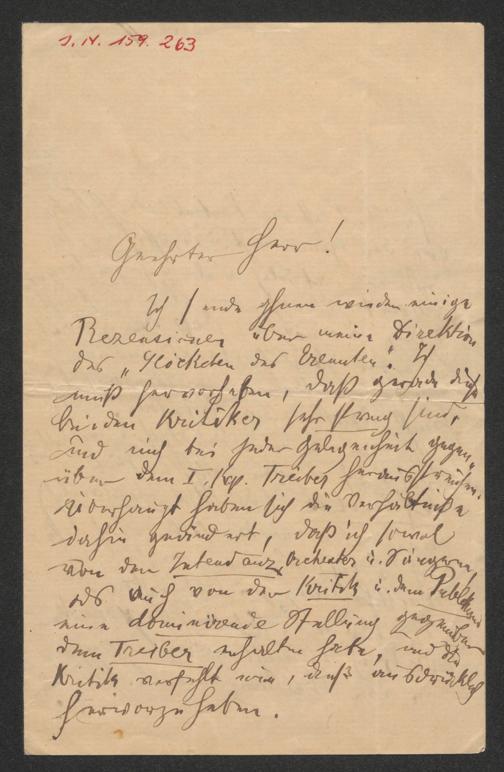 J. N. 159. 263
Geehrter Herr!
Ich sende Ihnen wieder einige
Rezensionen über meine Direktion
des „Glöckchen des Eremiten“. Ich
muß hervorheben, daß gerade diese
beiden Kritiker sehr streng sind,
und mich bei jeder Gelegenheit gegen-
über dem I. Kp. Treiber herausstreichen.
Überhaupt haben sich die Verhältnisse
dahin geändert, daß ich sowol
von der Intendanz, Orchester u. Sängern,
als auch von der Kritik u. dem Publikum
eine dominirende Stellung gegenüber
dem Treiber erhalten habe, und die
Kritik verfehlt nie, dieß ausdrücklich
hervorzuheben.